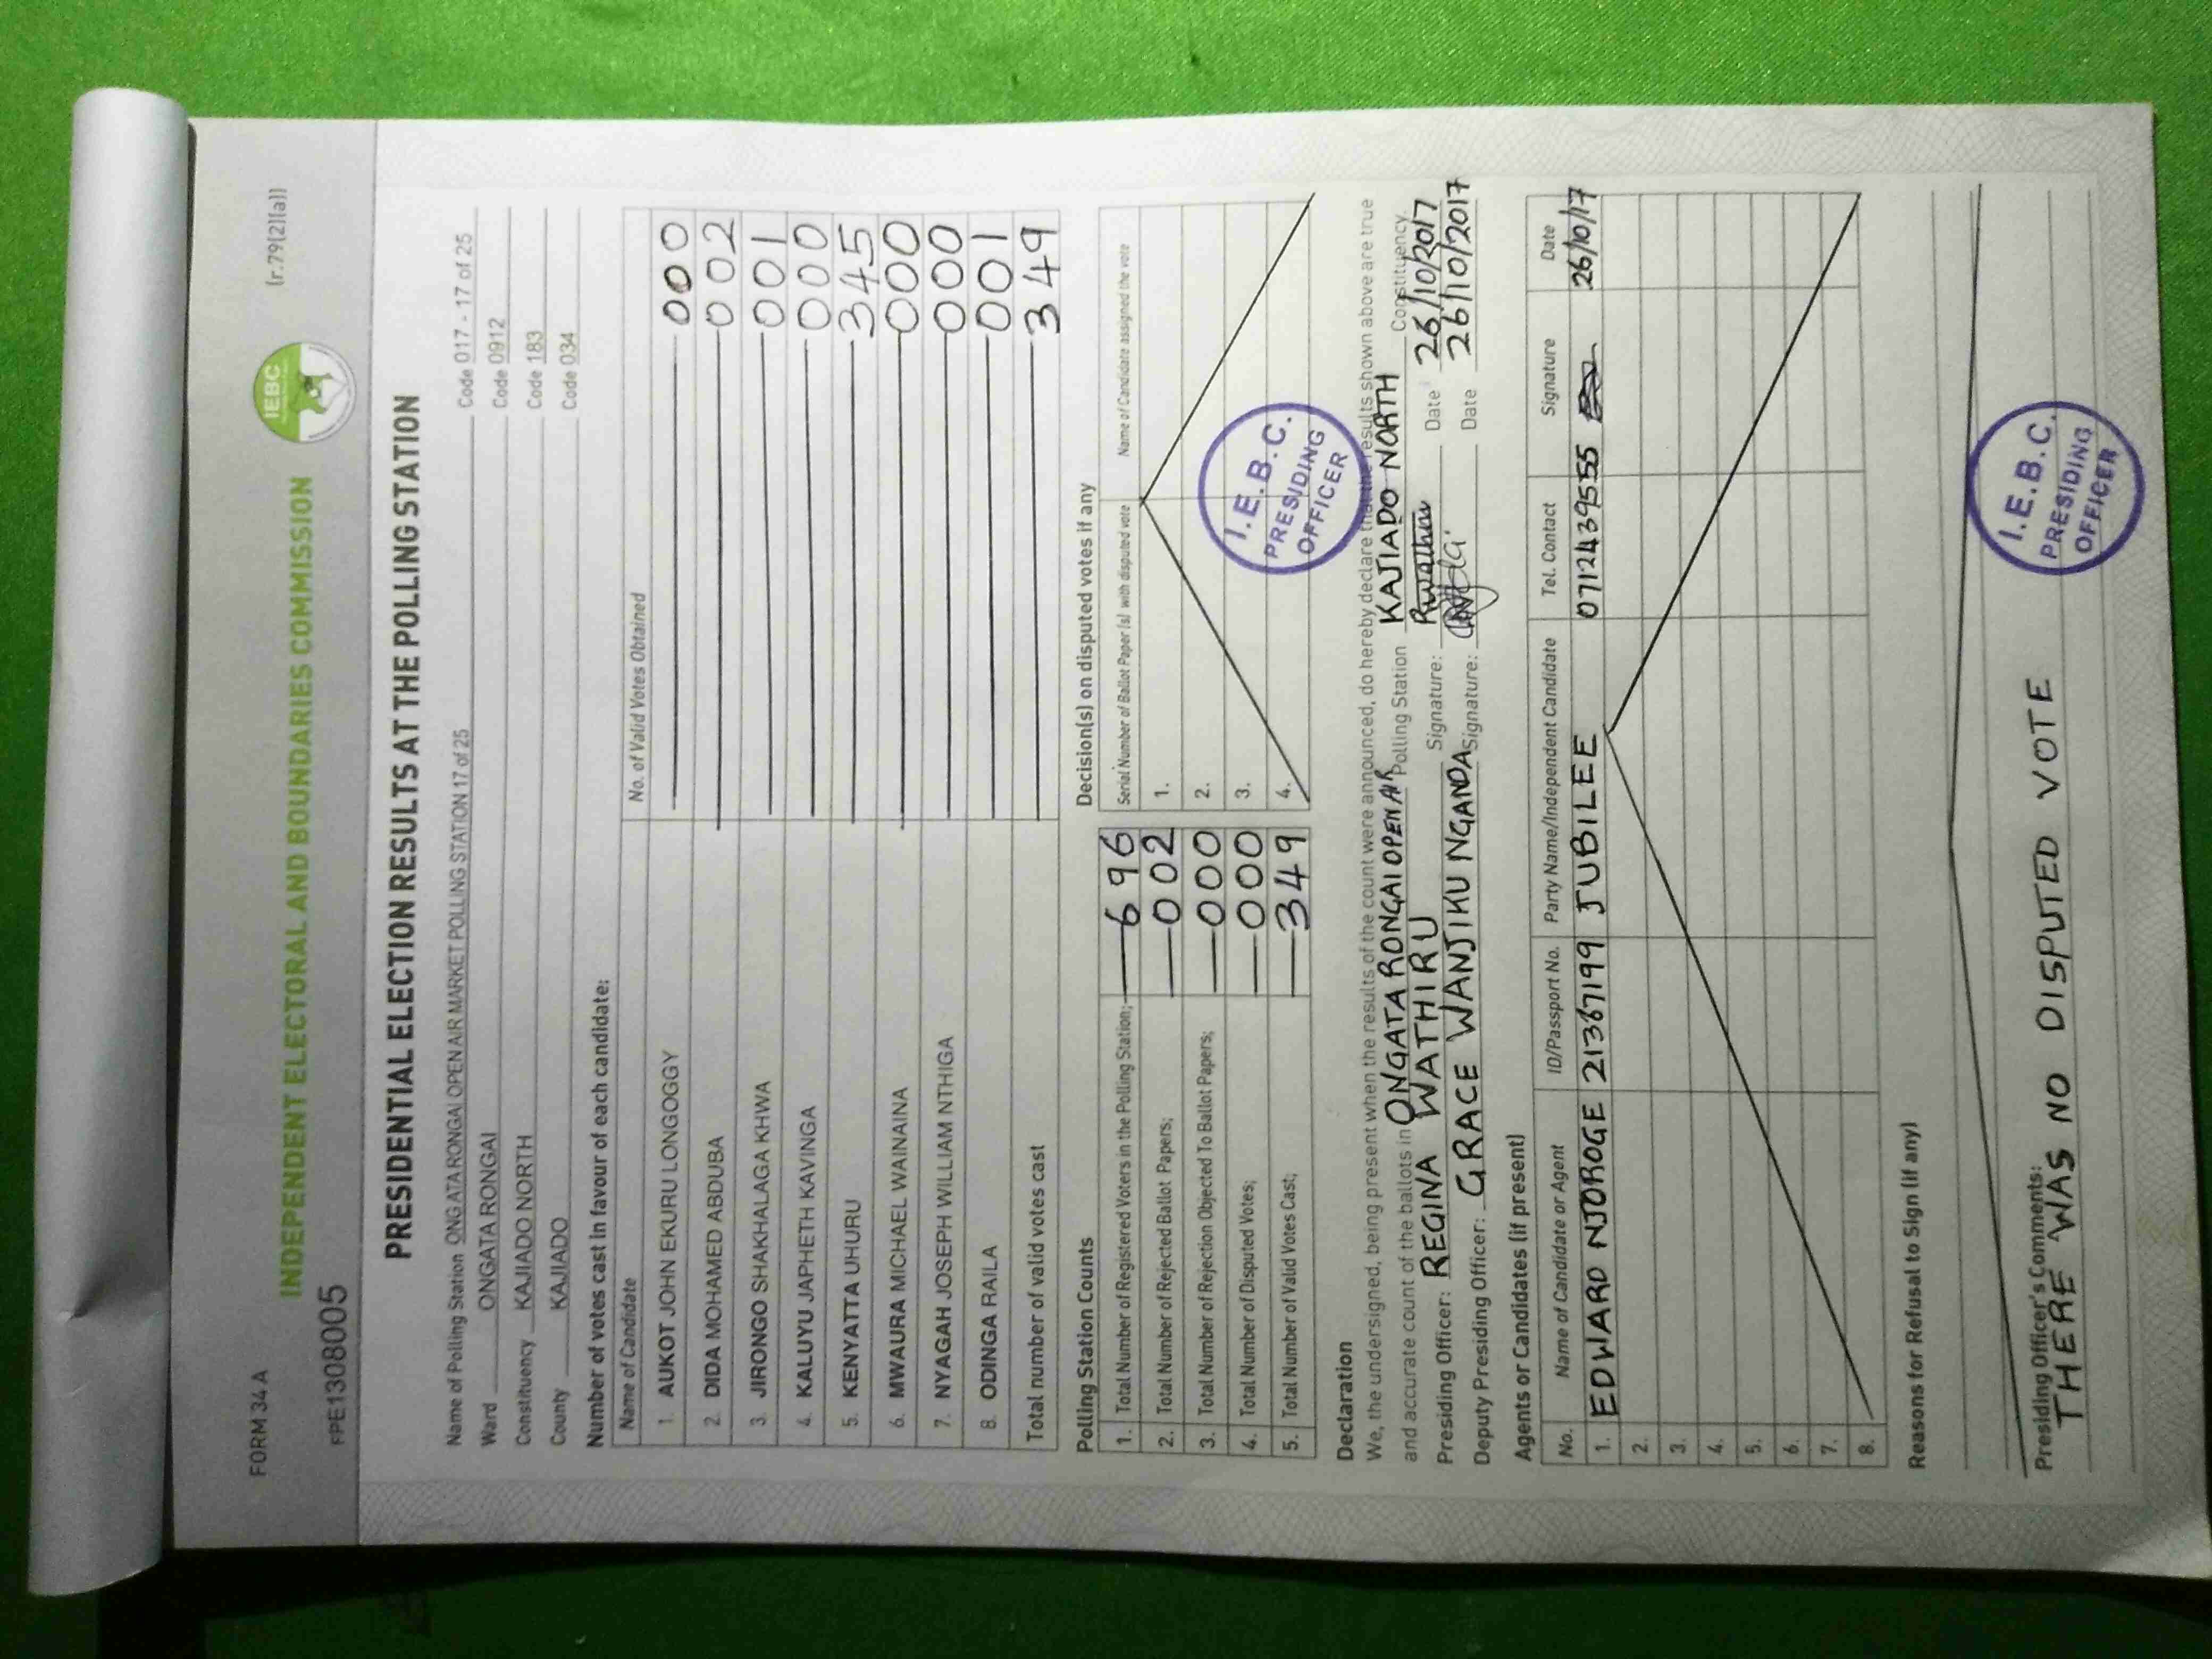 FORM 34 A
(r.79(2)(a))
IEBC
INDEPENDENT ELECTORAL AND BOUNDARIES COMMISSION
FPE1308005
PRESIDENTIAL ELECTION RESULTS AT THE POLLING STATION
Name of Polling Station ONG ATA RONGAI OPEN AIR MARKET POLLING STATION 17 of 25 Code 017 - 17 of 25
Ward ONGATA RONGAI Code 0912
Constituency KAJIADO NORTH Code 183
County KAJIADO Code 034
Number of votes cast in favour of each candidate:
Name of Candidate No. of Valid Votes Obtained
1. AUKOT JOHN EKURU LONGOGGY 000
2. DIDA MOHAMED ABDUBA 002
3. JIRONGO SHAKHALAGA KHWA 001
4. KALUYU JAPHETH KAVINGA 000
5. KENYATTA UHURU 345
6. MWAURA MICHAEL WAINAINA 000
7. NYAGAH JOSEPH WILLIAM NTHIGA 000
8. ODINGA RAILA 001
Total number of valid votes cast 349
Polling Station Counts
1. Total Number of Registered Voters in the Polling Station; 696
2. Total Number of Rejected Ballot Papers; 002
3. Total Number of Rejection Objected To Ballot Papers; 000
4. Total Number of Disputed Votes; 000
5. Total Number of Valid Votes Cast; 349
Decision(s) on disputed votes if any
Serial Number of Ballot Paper (s) with disputed vote Name of Candidate assigned the vote
1.
2.
3.
4.
I.E.B.C.
PRESIDING
OFFICER
Declaration
We, the undersigned, being present when the results of the count were announced, do hereby declare that the results shown above are true
and accurate count of the ballots in ONGATA RONGAI OPEN AIR Polling Station KAJIADO NORTH Constituency
Presiding Officer: REGINA WATHIRU Signature: Rwathiru Date 26/10/2017
Deputy Presiding Officer: GRACE WANJIKU NGANDA Signature: Date 26/10/2017
Agents or Candidates (if present)
No. Name of Candidate or Agent ID/Passport No. Party Name/Independent Candidate Tel. Contact Signature Date
1. EDWARD NJOROGE 21367199 JUBILEE 0712439555 26/10/17
2.
3.
4.
5.
6.
7.
8.
Reasons for Refusal to Sign (if any)
Presiding Officer's Comments:
THERE WAS NO DISPUTED VOTE
I.E.B.C.
PRESIDING
OFFICER